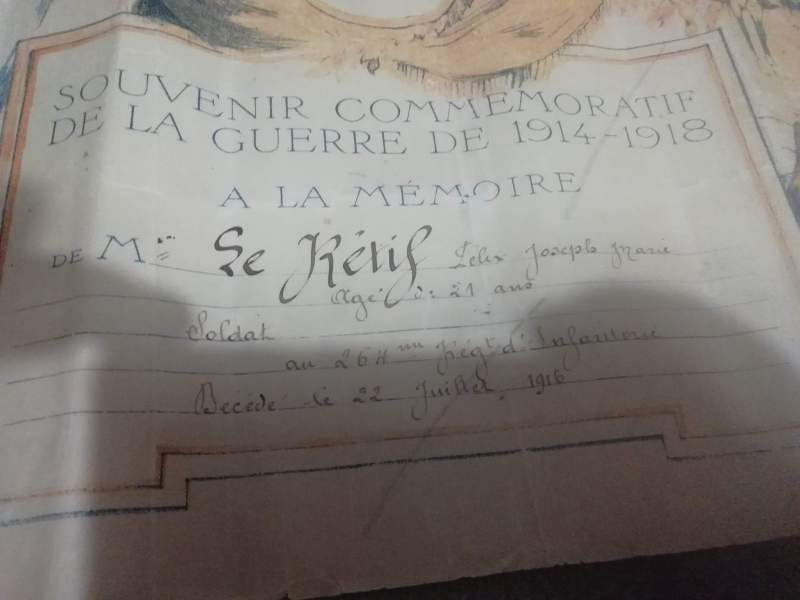 SOUVENIR COMMEMORATIF
DE LA GUERRE DE 1914-1918
A LA MÉMOIRE
DE Mr Le Rétif Félix Joseph Marie
Agé de 21 ans
Soldat
au 264me Régt d'Infanterie
Décédé le 22 Juillet 1916